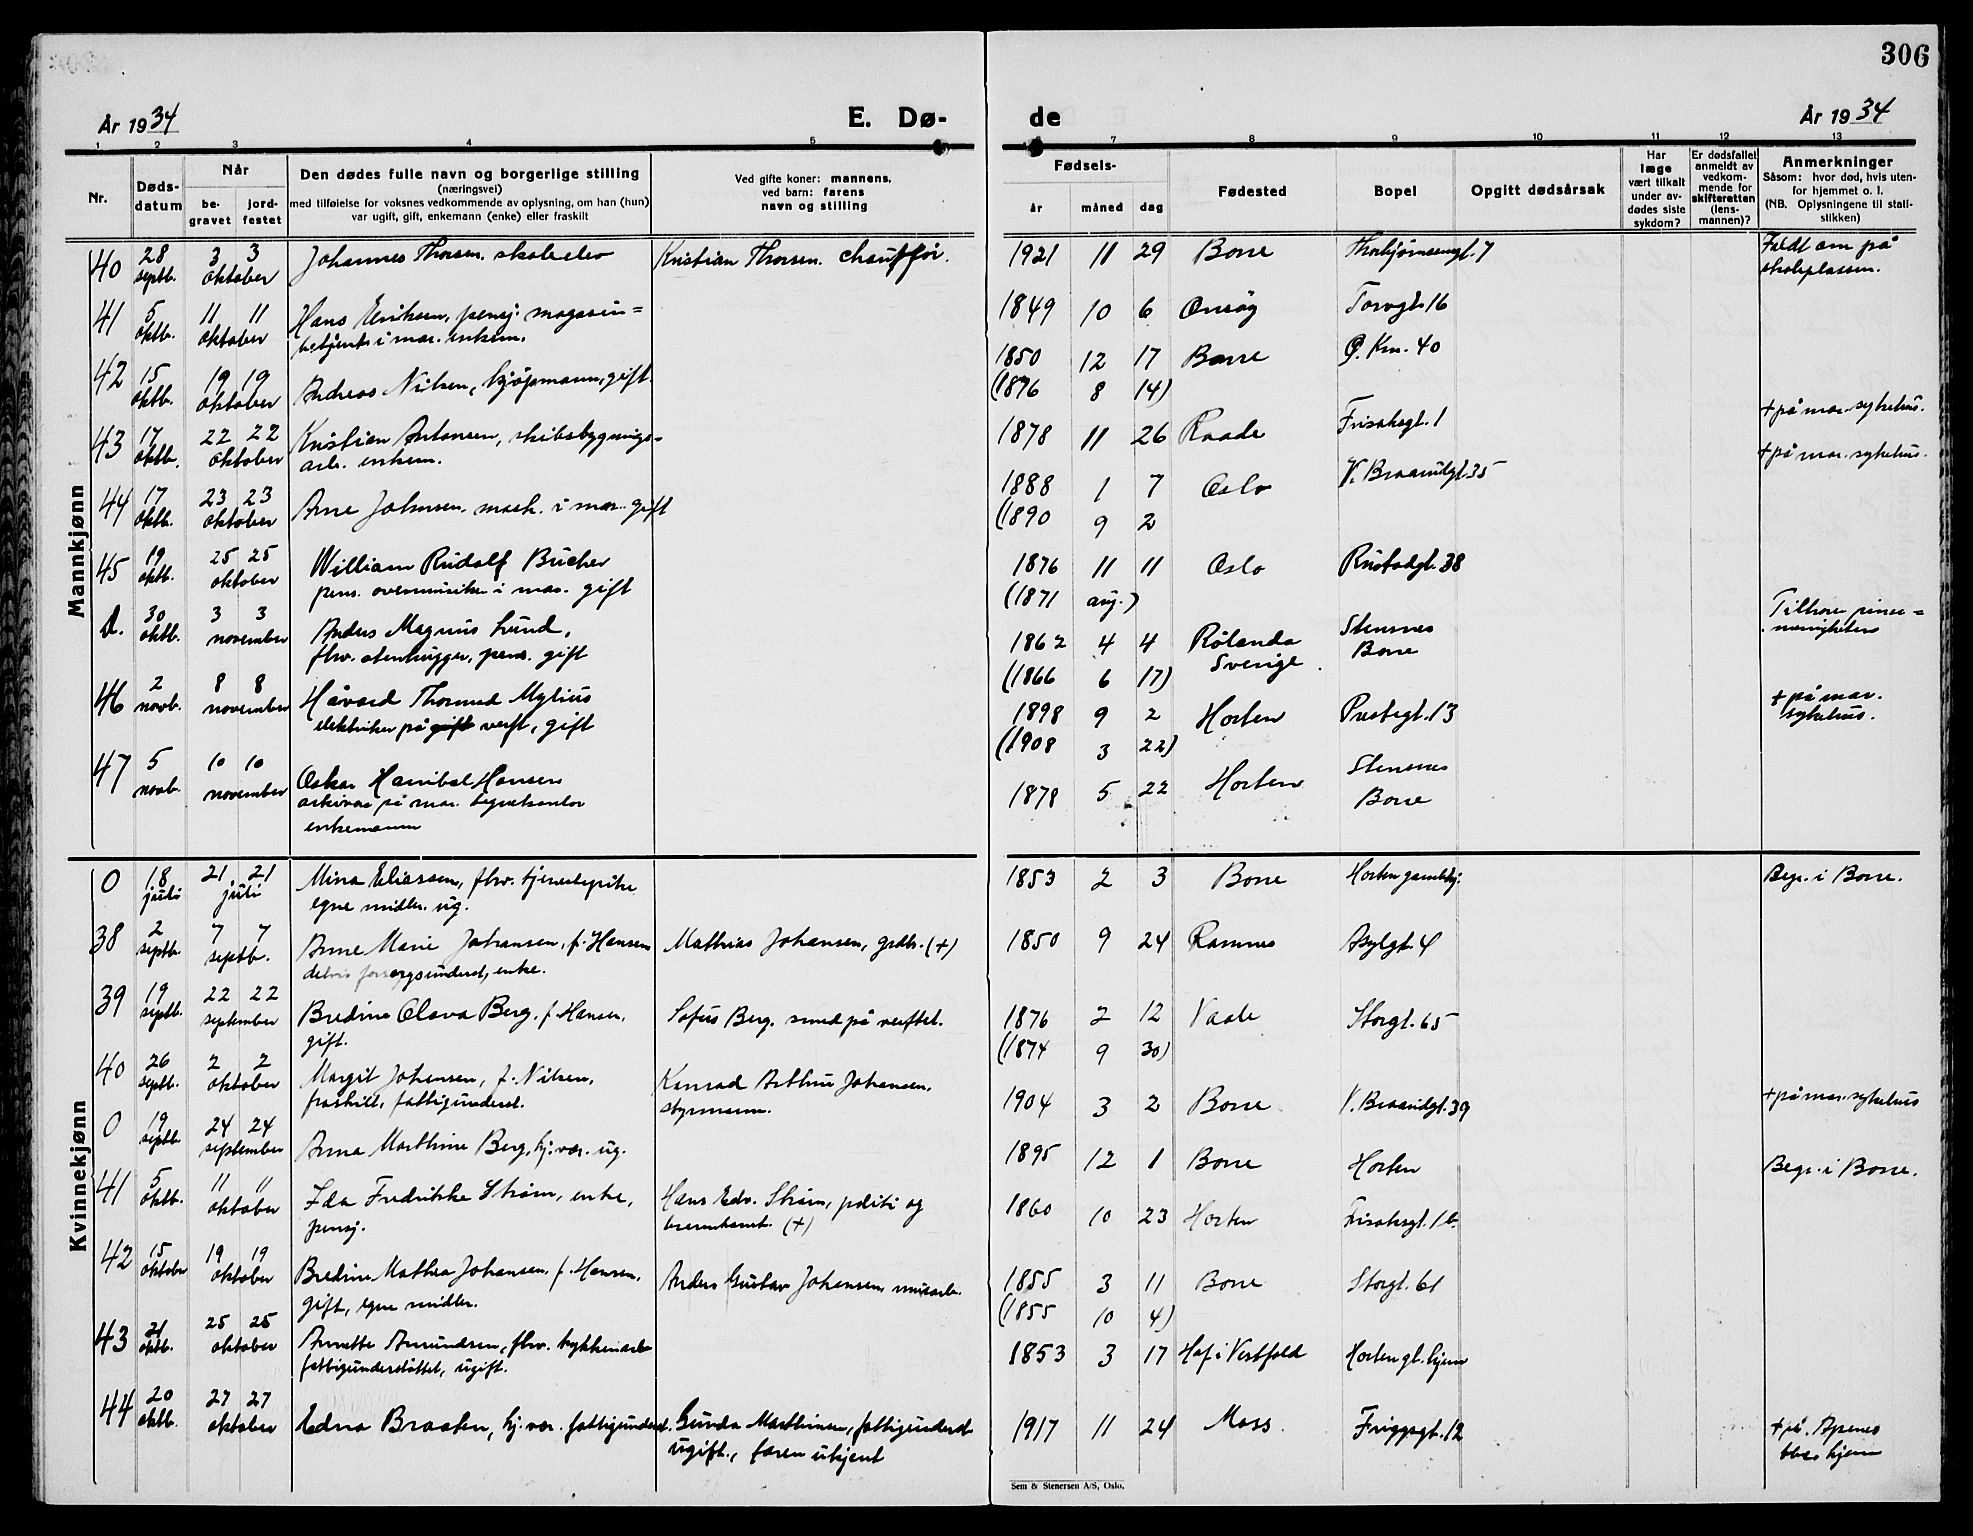 306
År 1934
E. Dø-
de
År 1934
1 2 3 4 5 6 7 8 9 10 11 12 13
Nr.
Døds-
datum
Når
be-
gravet
jord-
festet
Den dødes fulle navn og borgerlige stilling
(næringsvei)
med tilføielse for voksnes vedkommende av oplysning, om han (hun)
var ugift, gift, enkemann (enke) eller fraskilt
Ved gifte koner: mannens,
ved barn: farens
navn og stilling
Fødsels-
år måned dag
Fødested
Bopel
Opgitt dødsårsak
Har
læge
vært tilkalt
under av-
dødes siste
sykdom?
Er dødsfallet
anmeldt av
vedkom-
mende for
skifteretten
(lens-
mannen)?
Anmerkninger
Såsom: hvor død, hvis uten-
for hjemmet o. l.
(NB. Oplysningene til stati-
stikken)
Mannkjønn
40 28 3 3 Johannes Thorsen. skoleelev Kristian Thorsen. chauffør. 1921 11 29 Borre Thorbjørnsengt. 7 Faldt om på
septb. oktober skoleplassen.
41 5 11 11 Hans Eriksen, pensj. magasin= 1849 10 6 Onsøy Torvgt. 16
oktb. oktober betjent i mar. enkem.
42 15 19 19 Andreas Nilsen, kjøpmann, gift. 1850 12 17 Borre P. Km. 40
oktb. oktober (1876 8 14)
+ på mar. sykehus.
43 17 22 22 Kristian Antonsen, skibsbygnings- 1878 11 26 Raade Frisaksgt. 1
oktb. oktober arb. enkem.
+ på mar. sykehus.
44 17 23 23 Arne Johnsen. mask. i mar. gift 1888 1 7 Oslo V. Braarudgt. 35
oktb. oktober (1890 9 2
45 19 25 25 William Rudolf Bucher 1876 11 11 Oslo Rustadgt. 38
oktb. oktober pens. overmusiker i mar. gift (1871 aug.)
30 3 3 Anders Magnus Lund, 1862 4 4 Rølanda Stensnes Tilhører pinse=
oktb. november fhv. stenhugger, pens. gift (1866 6 17) Sverige Borre menigheten
46 2 8 8 Håvard Thormod Mylius 1898 9 2 Horten Prestegt. 13 + på mar.
novb. november elektriker på gift verft, gift (1908 3 22) sykehus.
47 5 10 10 Oskar Hanibal Hansen 1878 5 22 Horten Stensnes
novb. november arkivar på mar. Borre
enkemann
Kvinnekjønn
0 18 21 21 Mina Eliassen, fhv. tjenestepike 1853 2 3 Borre Horten gamlehj. Begr. i Borre.
juli juli egne midler. ug.
38 2 7 7 Anne Marie Johansen, f. Hansen Mathias Johansen, (+) 1850 9 24 Ramnes Asylgt. 4
septb. septb. delvis forsorgsunderst, enke.
39 19 22 22 Bredine Olava Berg, f. Hansen, Sofus Berg. smed på verftet. 1876 2 12 Vaale Storgt. 65
septb. september gift. (1874 9 30)
40 26 2 2 Margit Johansen, f. Nilsen, Konrad Arthur Johansen, 1904 3 2 Borre V. Braarudgt. 39 + på mar. sykehus
septb. oktober fraskilt, fattigunderst. styrmann.
0 19 24 24 Anna Marthine Berg, hj. vær. ug. 1895 12 1 Borre Horten Begr. i Borre.
septb. september
41 5 11 11 Ida Fredrikke Strøm, enke, Hans Edv. Strøm, politi og 1860 10 23 Horten Frisaksgt. 16
oktb. oktober pensj. (+)
42 15 19 19 Bredine Mathea Johansen, f. Hansen, Anders Gustav Johansen, murarb. 1855 3 11 Borre Storgt. 61
oktober oktober gift, egne midler. (1855 10 4)
43 21 25 25 Annette Amundsen, fhv. kjøkkenarb 1853 3 17 Hof i Vestfold Horten gl. hjem
oktb. oktober fattigunderstøttet, ugift.
44 20 27 27 Edna Braaten, hj. vær. fattigunderst. Gunda Marthinsen, fattigunderst. 1917 11 24 Moss Friggsgt. 12 + på Apenes
oktb. oktober ugift., faren ukjent hjem
Sem & Stenersen A/S, Oslo.